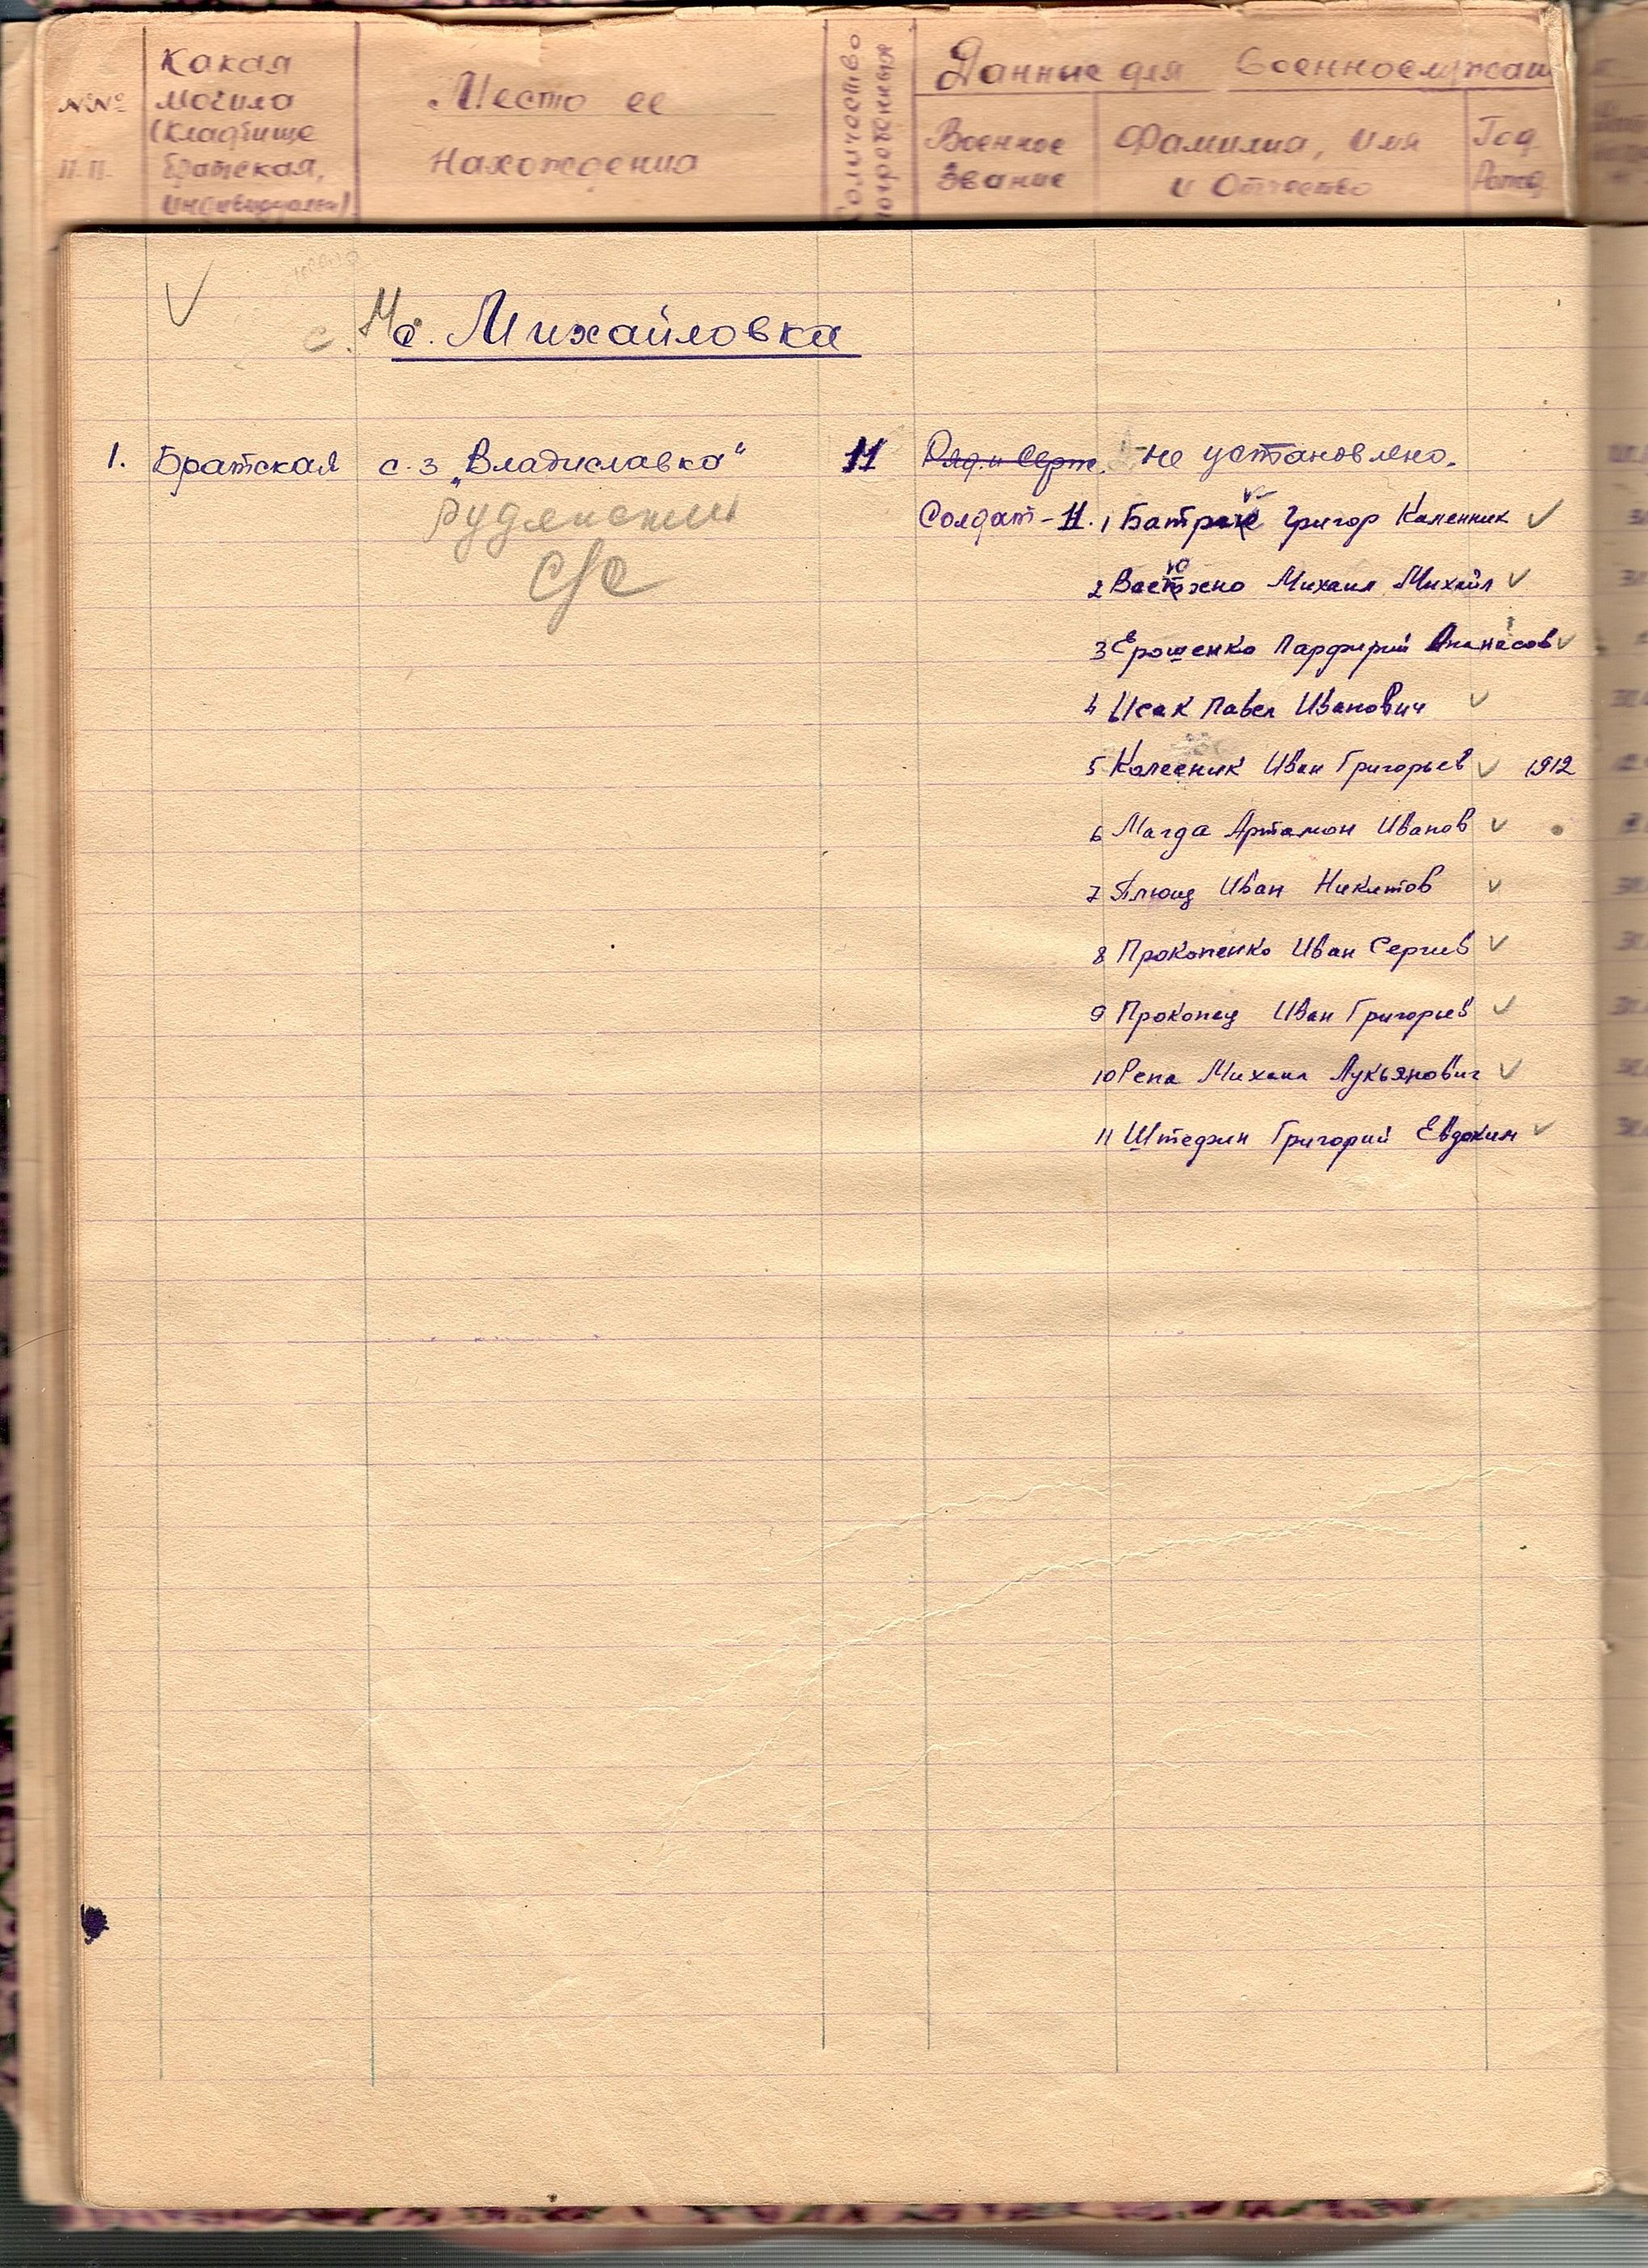 №№ п.п.
Какая могила (кладбище братская, индивидуальн)
Место ее нахождения
Количество погребенных
Данные для военнослужащ
Военное звание
Фамилия, имя и отчество
Год рожд.
с. Михайловка
1. Братская с.з „Владиславка“ 11 Ряд. и серж. не установлено.
Солдат - 11. 1 Григор Каленник
Руднянский
с/с
2 Михаил Михайл
3 Ерошенко Парфирий
4 Исак Павел Иванович
5 Колесник Иван Григорьев 1912
6 Магда Артамон Иванов
7 Плющ Иван Никитов
8 Прокопенко Иван Сергиев
9 Прокопец Иван Григорьев
10 Репа Михаил Лукьянович
11 Григорий Евдоким